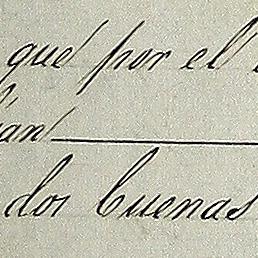 que por el
dos buenas